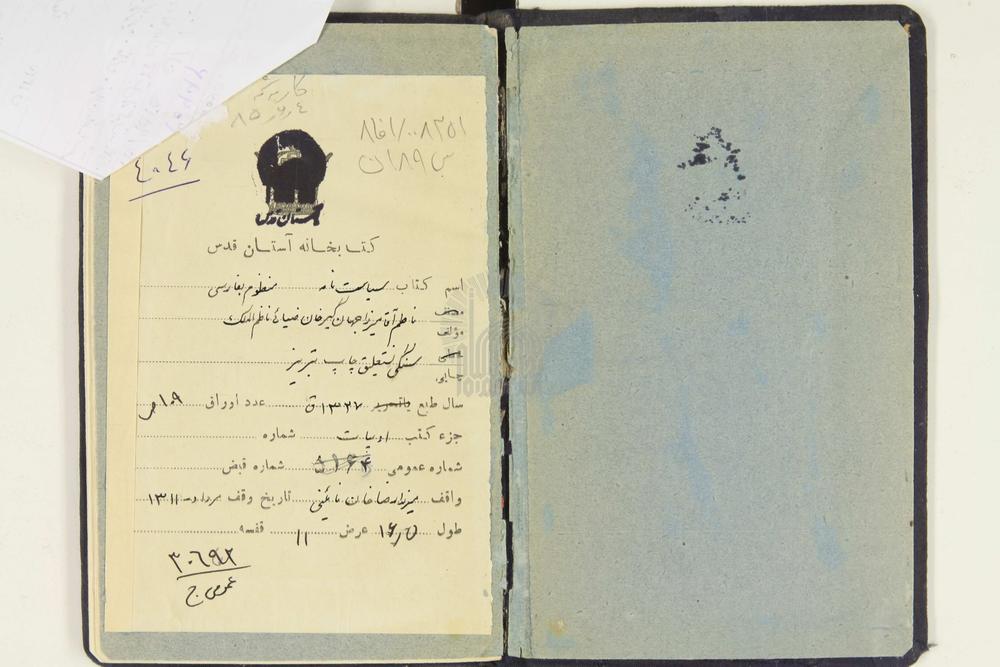 ۴۰۴۶
۸۵
آستان قدس
کتابخانه آستان قدس
اسم کتاب سیاست نامه منظوم بفارسی
مصنف
مؤلف
ناظم آقا میرزا جهانگیرخان ضیائی ناظم الملک
خطی
چاپی
سنگی نستعلیق چاپ تبریز
سال طبع یا تحریر ۱۳۲۷ ق عدد اوراق ۱۰۹ ص
جزء کتب ادبیات شماره
شماره عمومی ۵۱۶۴ شماره قبض
واقف میرزا رضا خان نائینی تاریخ وقف مرداد ۱۳۱۱
طول ۱۶٫۵ عرض ۱۱ قفسه
۳۰۶۹۲
عمومی ج